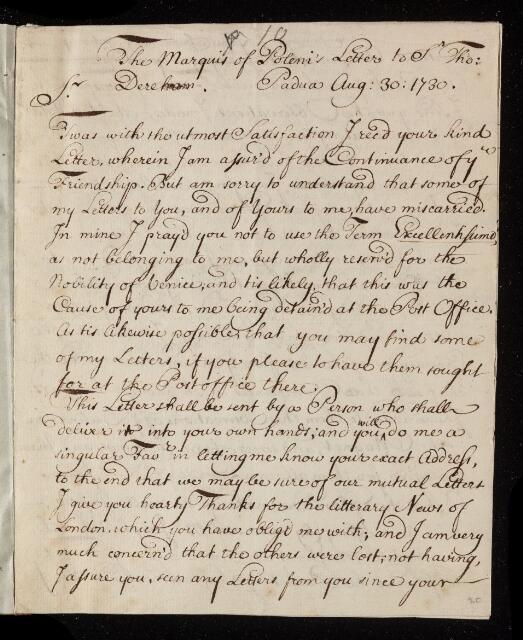 10
The Marquis of Poleni's Letter to Sr. Tho:
Sr. Dereham. Padua Aug: 30: 1730.
Twas with the utmost Satisfaction I rec'd your kind
Letter, wherein I am assur'd of the Continuance of yr.
Friendship. But am sorry to understand that some of
my Letters to You, and of Yours to me, have miscarried.
In mine I pray'd you not to use the Term Excellentissimo,
as not belonging to me, but wholly reserv'd for the
Nobility of Venice; and tis likely, that this was the
Cause of yours to me being detain'd at the Post Office.
As tis likewise possible, that you may find some
of my Letters, if you please to have them sought
for at the Post office there.
This Letter shall be sent by a Person who shall
deliver it into your own hands; and you will do me a
singular Favr. in letting me know your exact Address,
to the end that we may be sure of our mutual Letters
I give you hearty Thanks for the litterary News of
London, which you have oblig'd me with; and I am very
much concern'd that the others were lost; not having,
I assure you, seen any Letters from you since your